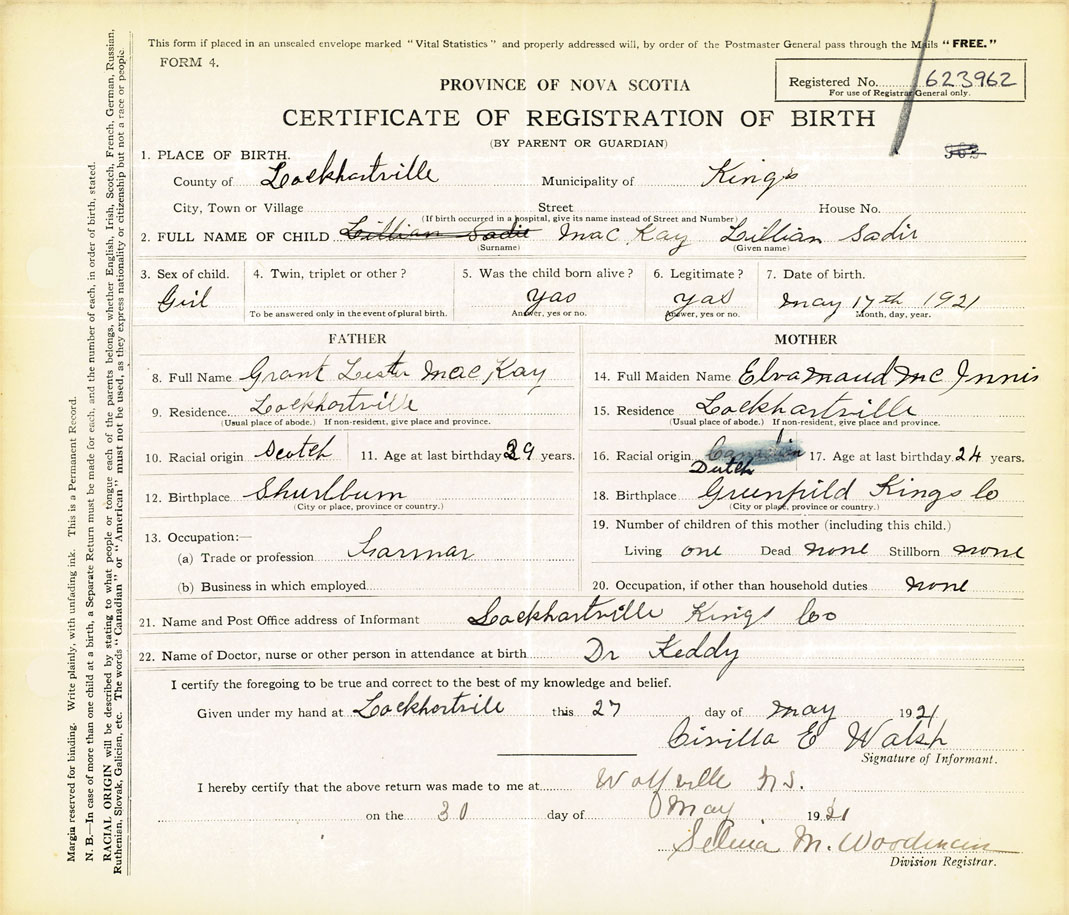 This form if placed in an unsealed envelope marked "Vital Statistics" and properly addressed will, by order of the Postmaster General pass through the Mails "FREE."
FORM 4.
Registered No. 623962
For use of Registrar General only.
PROVINCE OF NOVA SCOTIA
CERTIFICATE OF REGISTRATION OF BIRTH
(BY PARENT OR GUARDIAN)
1. PLACE OF BIRTH.
County of Lockhartville Municipality of Kings
City, Town or Village Street House No.
(If birth occurred in a hospital, give its name instead of Street and Number)
2. FULL NAME OF CHILD Lillian Sadie Mac Kay Lillian Sadie
(Surname) (Given name)
3. Sex of child. 4. Twin, triplet or other? 5. Was the child born alive? 6. Legitimate? 7. Date of birth.
Girl yas yas May 17th 1921
To be answered only in the event of plural birth. Answer, yes or no. Answer, yes or no. Month, day, year.
FATHER MOTHER
8. Full Name Grant Lester Mac Kay 14. Full Maiden Name Elva Maud Mc Innis
9. Residence Lockhartville 15. Residence Lockhartville
(Usual place of abode.) If non-resident, give place and province. (Usual place of abode.) If non-resident, give place and province.
10. Racial origin Scotch 11. Age at last birthday 39 years. 16. Racial origin Dutch 17. Age at last birthday 24 years.
12. Birthplace Shurlburn 18. Birthplace Greenfild Kings Co
(City or place, province or country.) (City or place, province or country.)
13. Occupation:— 19. Number of children of this mother (including this child.)
(a) Trade or profession Farmar Living one Dead none Stillborn none
(b) Business in which employed 20. Occupation, if other than household duties none
21. Name and Post Office address of Informant Lockhartville Kings Co
22. Name of Doctor, nurse or other person in attendance at birth Dr Keddy
I certify the foregoing to be true and correct to the best of my knowledge and belief.
Given under my hand at Lockhortvill this 27 day of May 1921
Civilla E Walsh
Signature of Informant.
I hereby certify that the above return was made to me at Wolfville N.S.
on the 30 day of May 1921
Selina M. Woodman
Division Registrar.
Margin reserved for binding. Write plainly, with unfading ink. This is a Permanent Record.
N. B.—In case of more than one child at a birth, a Separate Return must be made for each, and the number of each, in order of birth, stated.
RACIAL ORIGIN will be described by stating to what people or tongue each of the parents belongs, whether English, Irish, Scotch, French, German, Russian,
Ruthenian, Slovak, Galician, etc. The words "Canadian" or "American" must not be used, as they express nationality or citizenship but not a race or people.